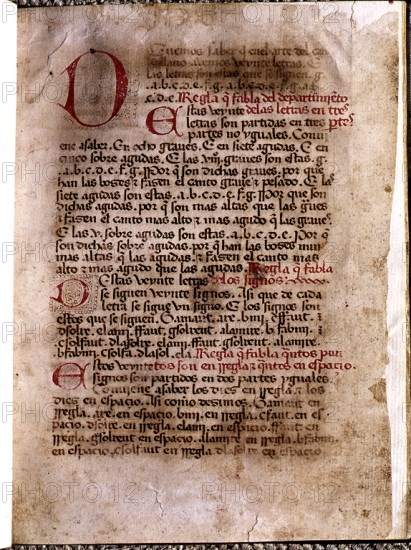 Devemos saber que en el arte del can
to llano avemos veynte letras. E
las letras son estas que se siguen. g.
a.b.c.d.e.f.g.a.b.c.d.e.f.g.a.
b.c.d.e. Regla que fabla del departimento
Estas veynte delas letras en tres
letras son partidas en tres partes
partes no yguales. Convi
ene a saber. En ocho graves. E en siete agudas. E en
cinco sobre agudas. E las viii. graves son estas. g.
a.b.c.d.e.f.g. Por que son dichas graves. por que
han las bozes & fasen el canto grave & pesado. E las
siete agudas son estas. a.b.c.d.e.f.g. Por que son
dichas agudas. por que son mas altas que las graves
& fasen el canto mas alto & mas agudo que las graves.
E las v. sobre agudas son estas. a.b.c.d.e. Por que
son dichas sobre agudas. por que han las bozes muy
mas altas que las agudas. & fasen el canto mas
alto & mas agudo que las agudas. Regla que fabla
Destas veynte letras delos signos
se siguen veynte signos. Asi que de cada
letra se sigue un signo. E los signos son
estos que se siguen. Gamaut. are. bmi. cfaut.
dsolre. elami. ffaut. gsolreut. alamire. bfabmi.
csolfaut. dlasolre. elami. ffaut. gsolreut. alamire.
bfabmi. csolfa. dlasol. ela. Regla que fabla quantos pun
Estos veynte tos son en rregla & quantos en espacio.
signos son partidos en dos partes yguales.
Conviene a saber los dies en rregla & los
dies en espacio. Asi como desimos. Gamaut en
rregla. are. en espacio. bmi. en rregla. cfaut. en es
pacio. dsolre. en rregla. elami. en espacio. ffaut. en
rregla. gsolreut en espacio. alamire en rregla. bfabmi.
en espacio. csolfaut en rregla. dlasolre en espacio
PHOTO12